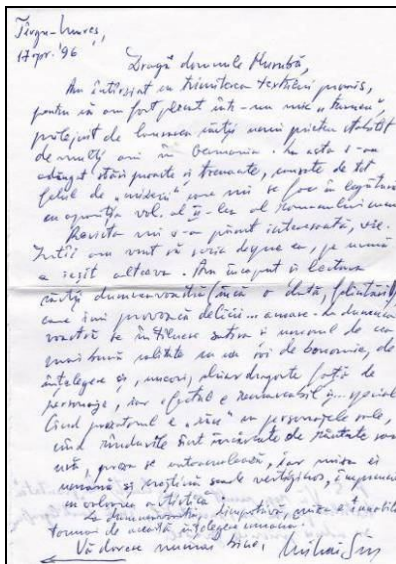 Târgu-Mureș,
17 apr. '96
Dragă domnule Murubă,
Am întârziat cu trimiterea textului promis,
pentru că am fost plecat într-un mic „turneu”,
prilejuit de lansarea cărții unui prieten stabilit
de mulți ani în Germania. La asta s-au
adăugat stări proaste și tracasante, cauzate de tot
felul de „mizerii” care mi se fac în legătură
cu apariția vol. al II-lea al romanului meu.
Revista mi s-a părut interesantă, vie.
Întâi am vrut să scriu despre ea, pe urmă
a ieșit altceva. Am început și lectura
cărții dumneavoastră (încă o dată, felicitări!)
care îmi provoacă delicii... amare. La dumnea-
voastră se întâlnesc satira și umorul de cea
mai bună calitate cu un de bonomie, de
înțelegere și, uneori, chiar dragoste față de
personaje, iar efectul e remarcabil și... special.
Când prozatorul e „rău” cu personajele sale,
când rândurile sunt încărcate de răutate sau
ură, proza se autoanulează, iar miza ei
umană și estetică scade vertiginos, împreună
cu valoarea artistică.
La dumneavoastră, dimpotrivă, miza e
tocmai de această înțelegere umană.
Vă doresc numai bine,
Mihai Sin